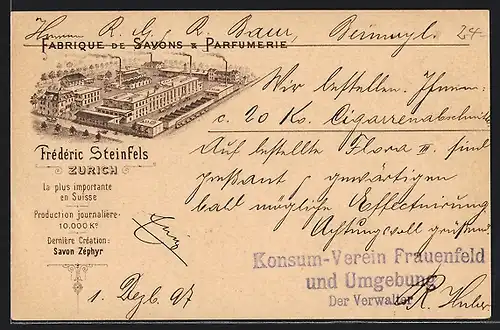 Herren R. & R. Baur, Beinwyl. 24
FABRIQUE DE SAVONS & PARFUMERIE
Frédéric Steinfels
ZURICH
La plus importante
en Suisse
Production journalière
10.000 Ko
Dernière Création:
Savon Zéphyr
Wir bestellen Ihnen
c. 20 Ko. Cigarrenabschnitte
Auf bestellte Flora III. sind
pressant, gewärtigen
bald mögliche Effectuirung
Achtungsvoll grüssend
Konsum-Verein Frauenfeld
und Umgebung
Der Verwalter
R. Huber
1. Dezb. 97